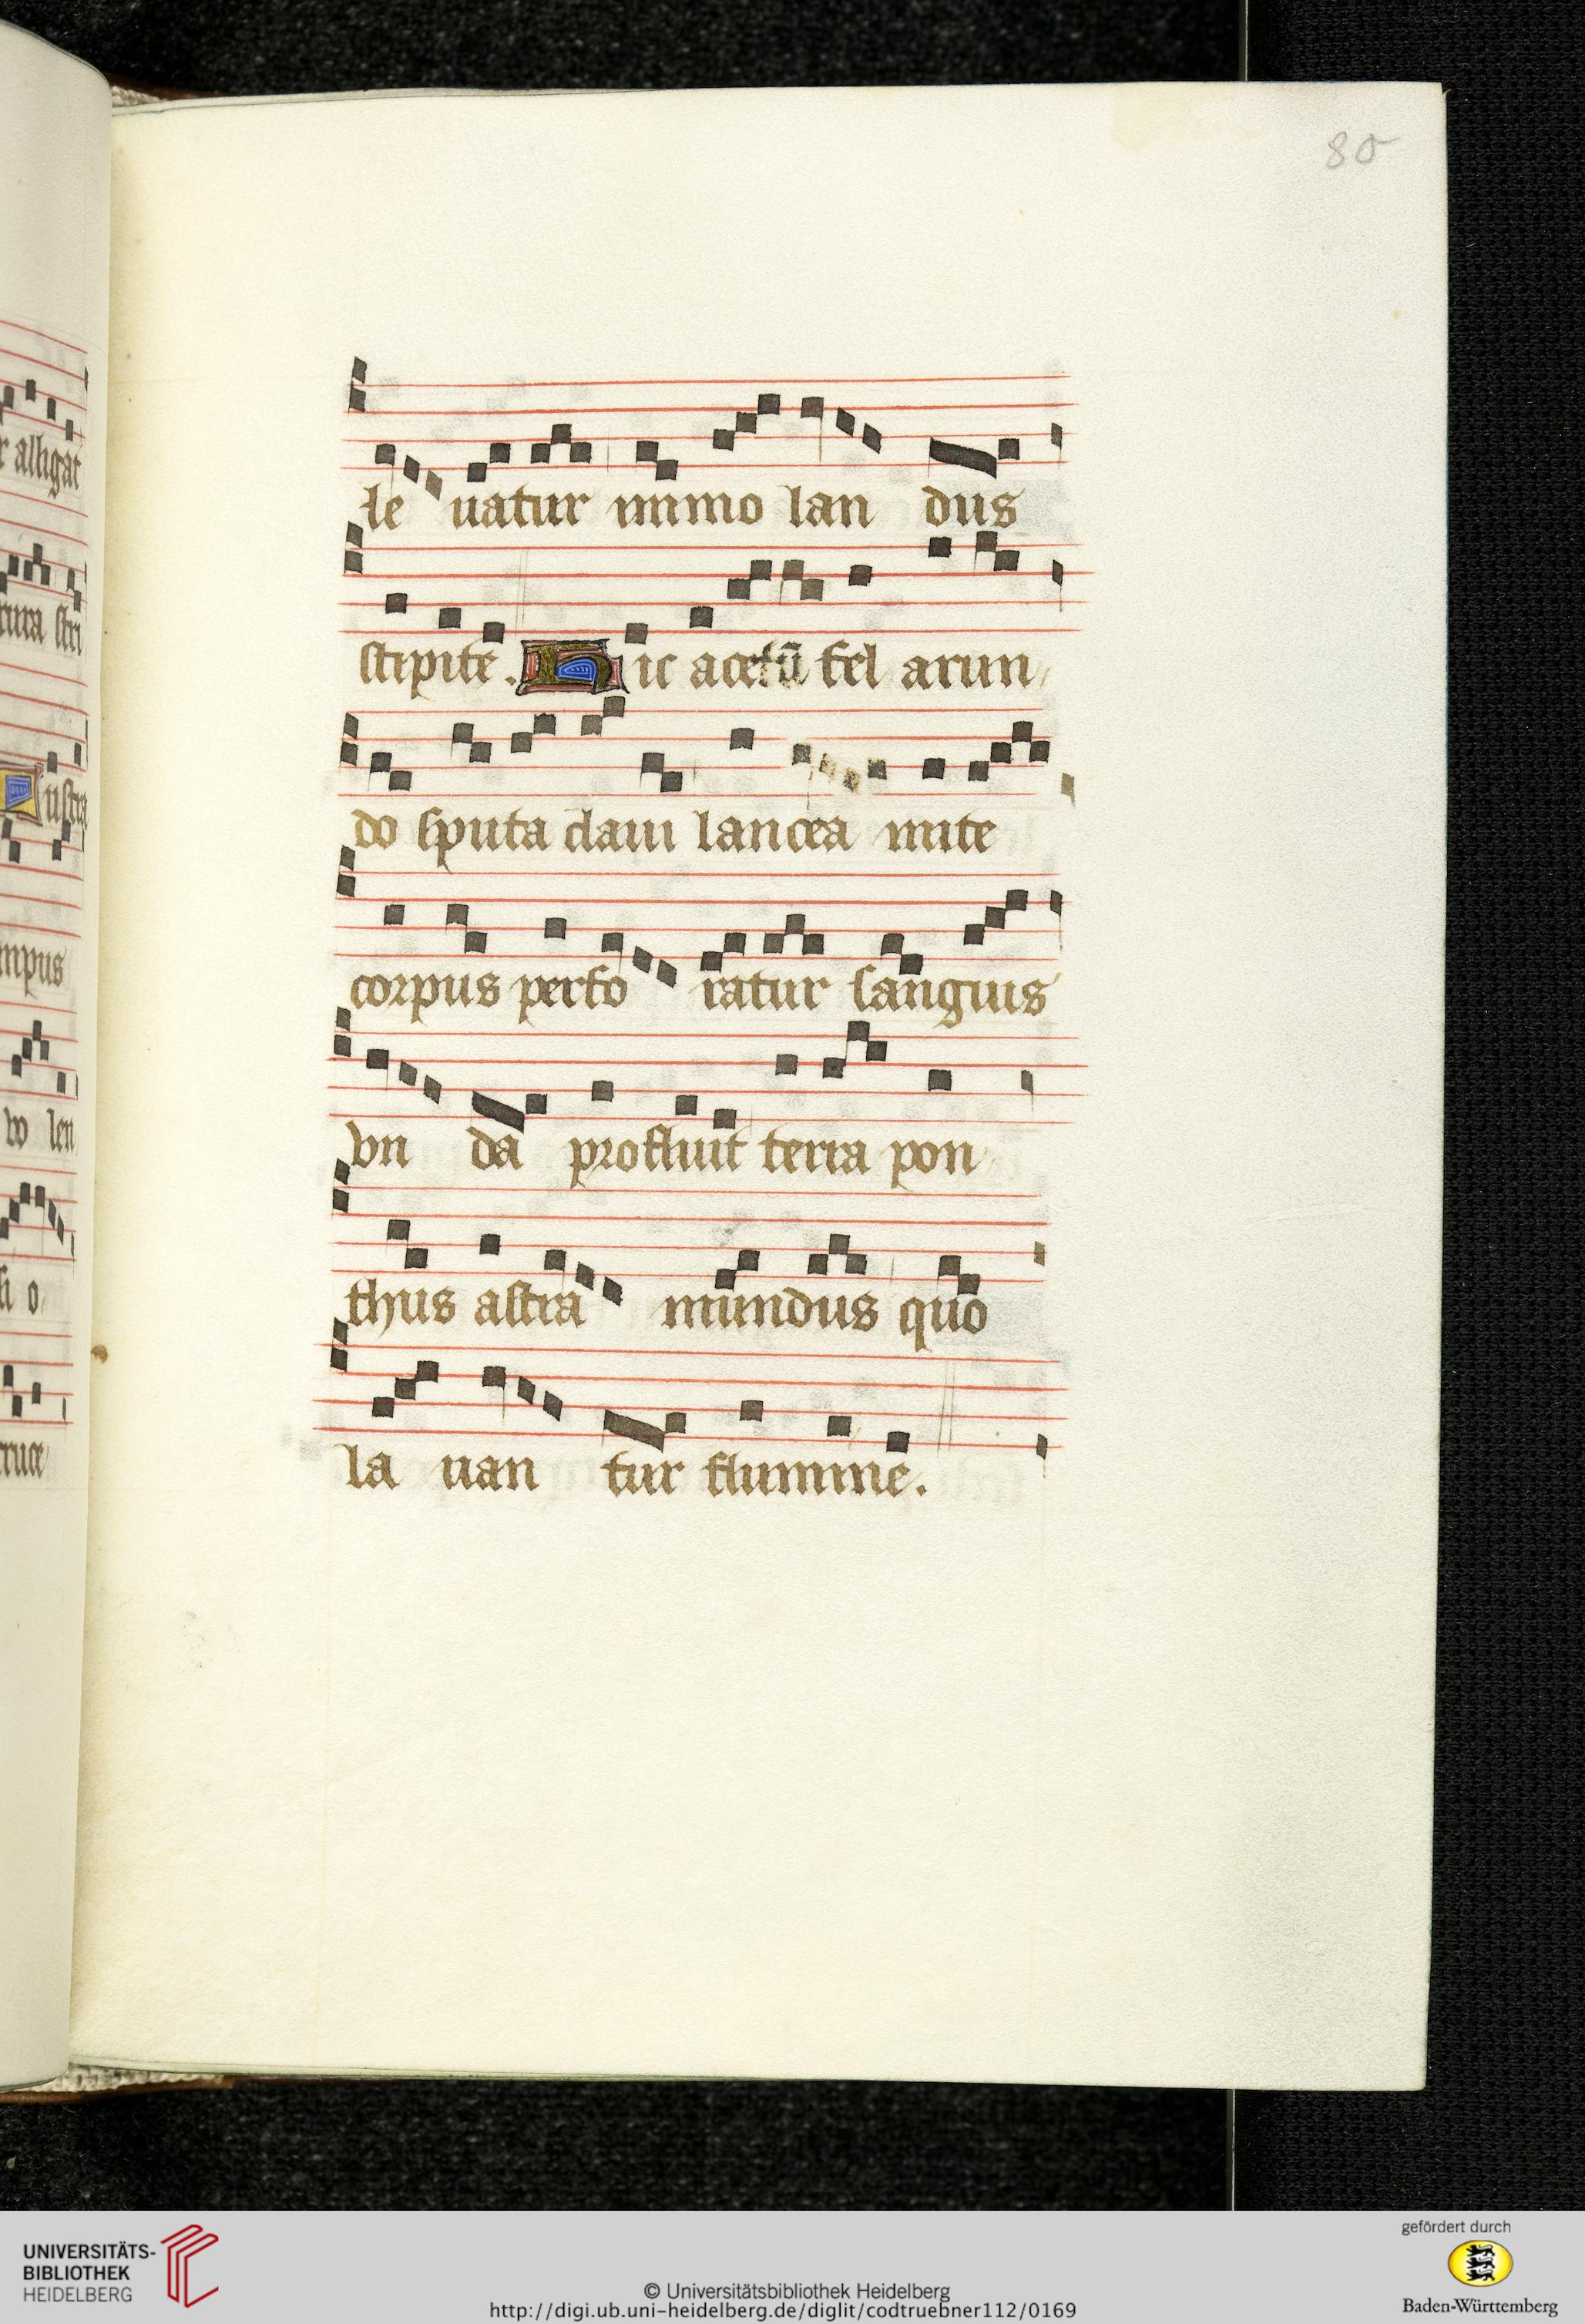 80
le uatur immo lan dus
stipite. Hic acetū fel arun
do sputa claui lancea mite
corpus perfo ratur sanguis
vn da profluit terra pon
thus astra mundus quo
la uan tur flumine.
r alligat
tura stri
lustra
mpus
lo len
o
cruce
UNIVERSITÄTS-
BIBLIOTHEK
HEIDELBERG
© Universitätsbibliothek Heidelberg
http://digi.ub.uni-heidelberg.de/diglit/codtruebner112/0169
gefördert durch
Baden-Württemberg